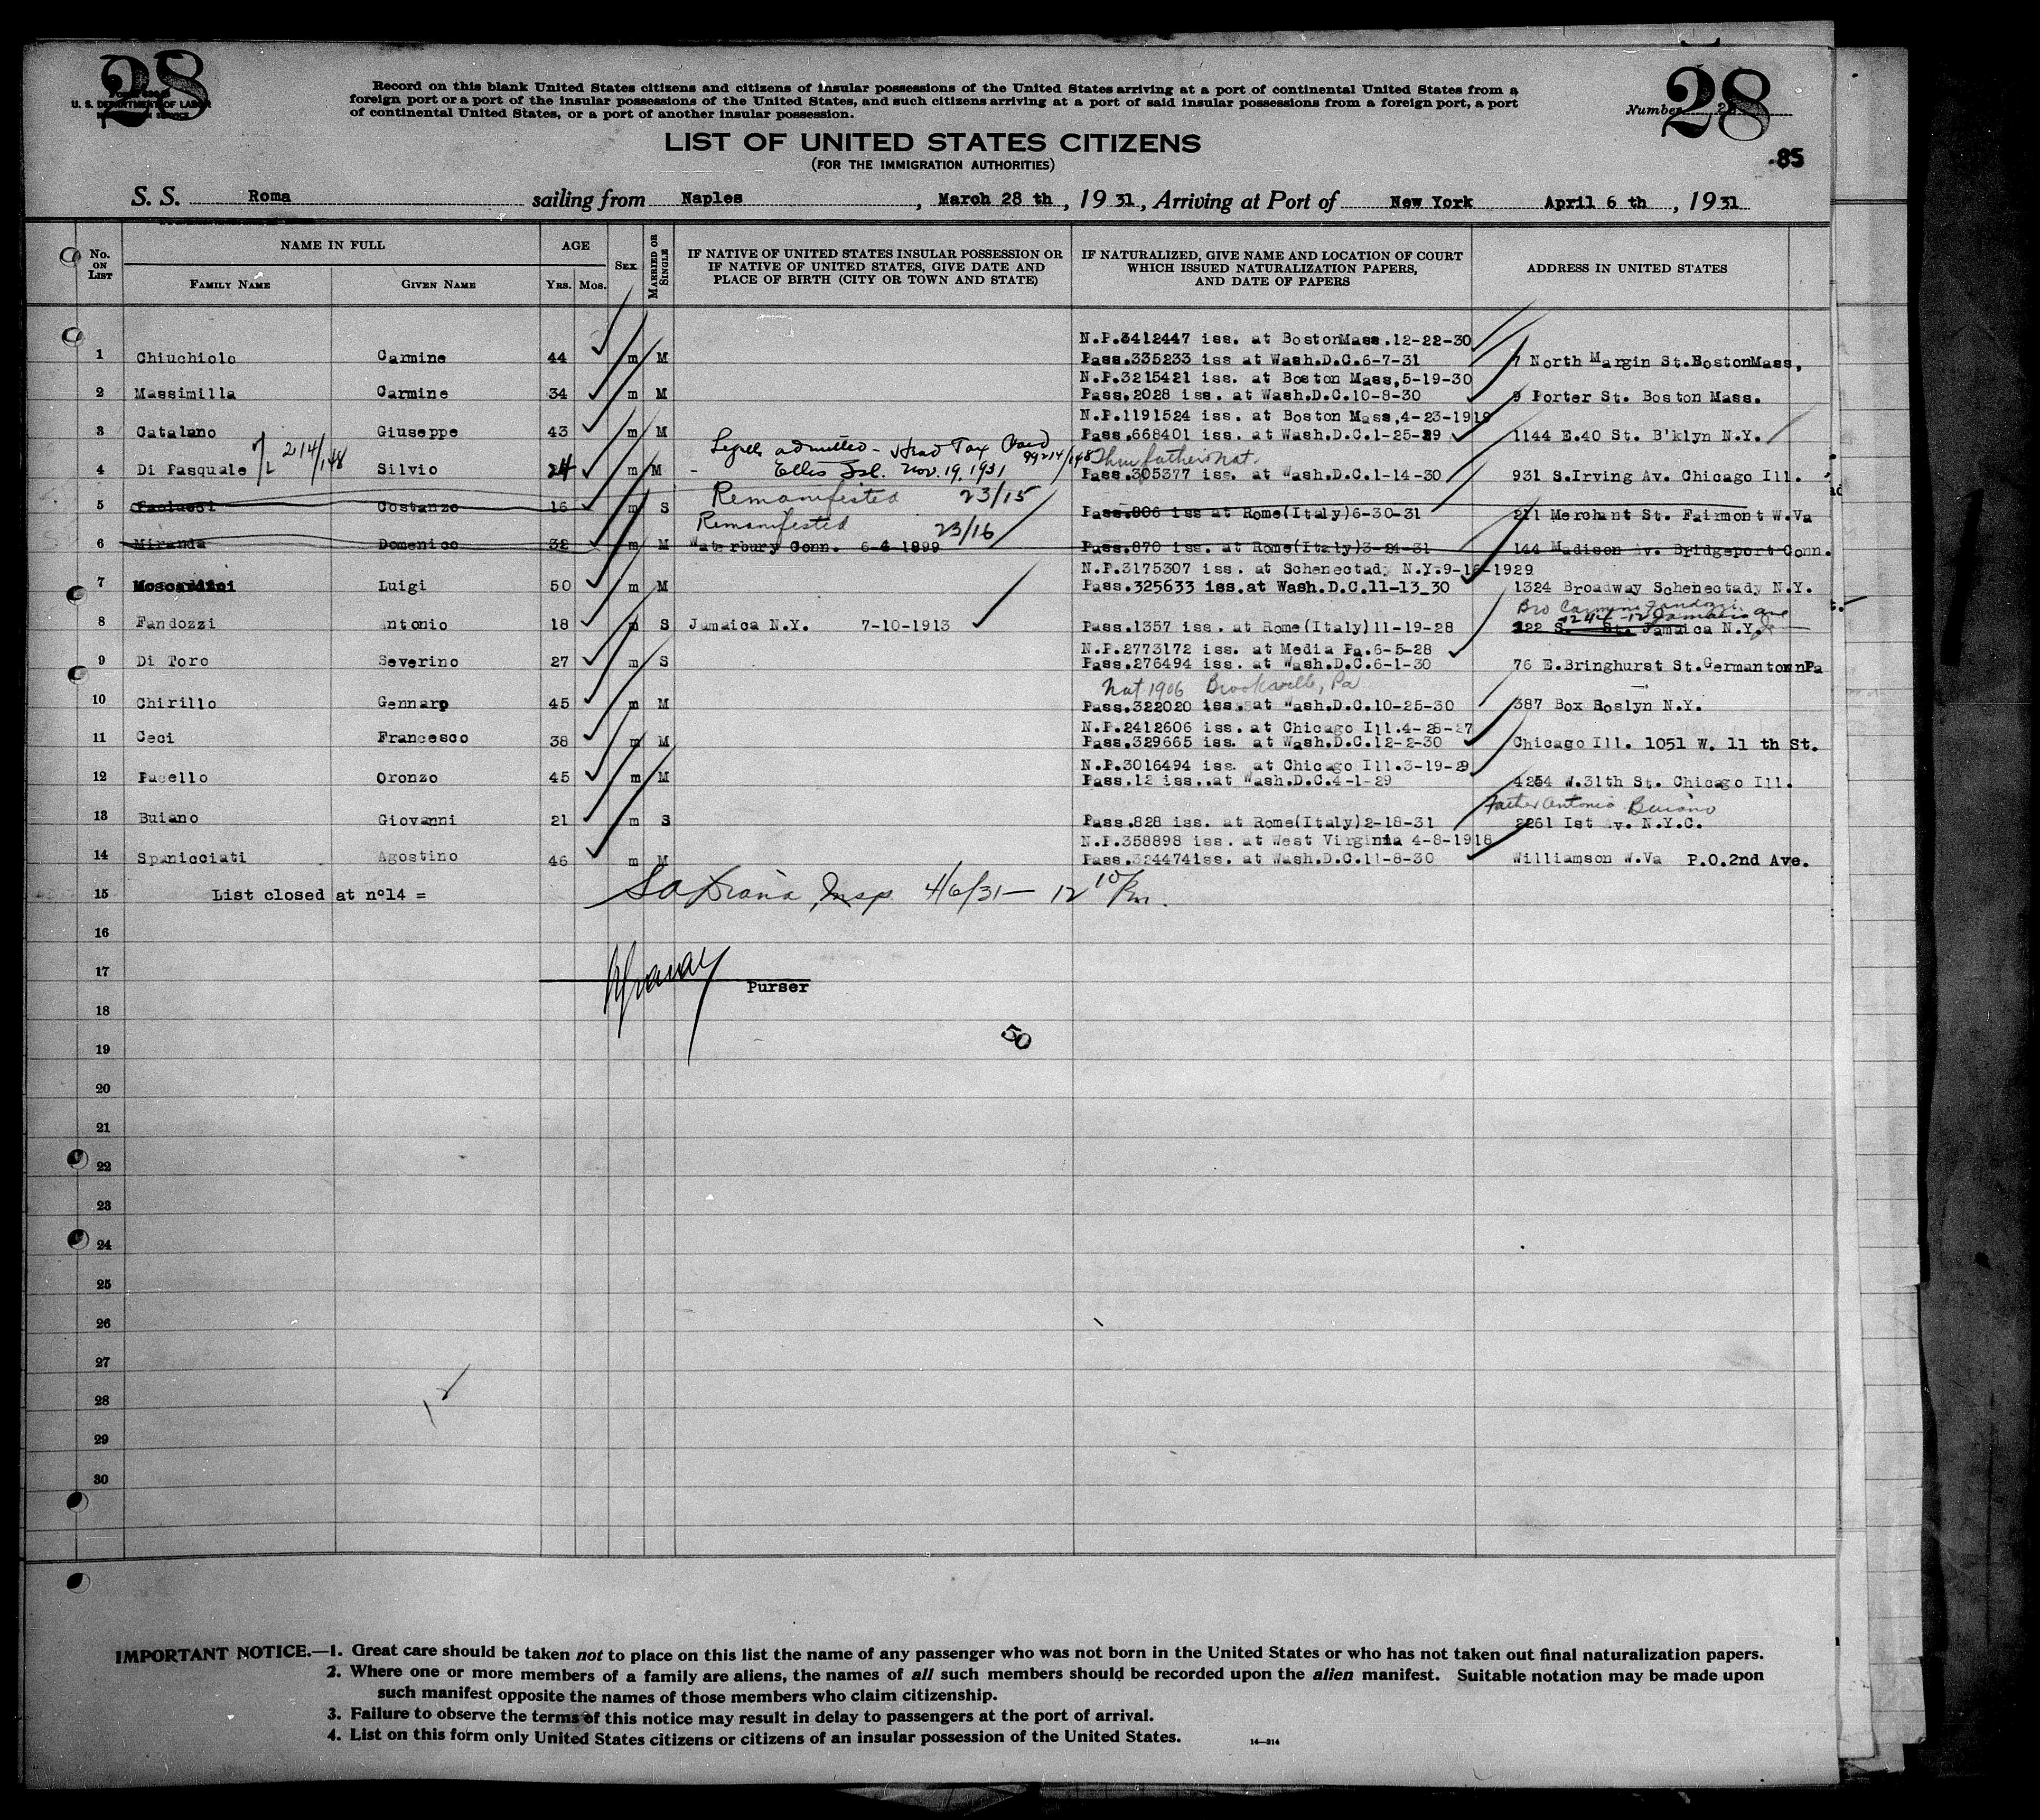 28
U. S. DEPARTMENT OF LABOR
Record on this blank United States citizens and citizens of insular possessions of the United States arriving at a port of continental United States from a
foreign port or a port of the insular possessions of the United States, and such citizens arriving at a port of said insular possessions from a foreign port, a port
of continental United States, or a port of another insular possession.
Number 28
28
85
LIST OF UNITED STATES CITIZENS
(FOR THE IMMIGRATION AUTHORITIES)
S. S. Roma sailing from Naples, March 28 th, 1931, Arriving at Port of New York April 6 th, 1931
No. ON LIST NAME IN FULL AGE SEX MARRIED OR SINGLE IF NATIVE OF UNITED STATES INSULAR POSSESSION OR IF NATIVE OF UNITED STATES, GIVE DATE AND PLACE OF BIRTH (CITY OR TOWN AND STATE) IF NATURALIZED, GIVE NAME AND LOCATION OF COURT WHICH ISSUED NATURALIZATION PAPERS, AND DATE OF PAPERS ADDRESS IN UNITED STATES
FAMILY NAME GIVEN NAME YRS. MOS.
N.P.3412447 iss. at BostonMass.12-22-30
1 Chiuchiolo Carmine 44 m M Pass.335233 iss at Wash.D.C.6-7-31 7 North Margin St.BostonMass,
N.P.3215421 iss. at Boston Mass,5-19-30
2 Massimilla Carmine 34 m M Pass.2028 iss. at Wash.D.C.10-8-30 9 Porter St. Boston Mass.
N.P.1191524 iss. at Boston Mass,4-23-1918
3 Catalano Giuseppe 43 m M Pass.668401 iss. at Wash.D.C.1-25-29 1144 E.40 St. B'klyn N.Y.
214/148 Legally admitted - Head Tax Paid 99214/148 Thru father's Nat.
4 Di Pasquale Silvio 24 m M - Ellis Isl. Nov. 19, 1931 Pass.305377 iss. at Wash.D.C.1-14-30 931 S.Irving Av. Chicago Ill.
Remanifested 23/15
5 Paolucci Costanzo 16 m S Pass.806 iss at Rome(Italy)6-30-31 211 Merchant St. Fairmont W.Va
Remanifested 23/16
6 Miranda Domenico 32 m M Waterbury Conn. 6-4-1899 Pass.870 iss. at Rome(Italy)3-24-31 144 Madison Av. Bridgeport Conn.
N.P.3175307 iss. at Schenectady N.Y.9-16-1929
7 Moscardini Luigi 50 m M Pass.325633 iss.at Wash.D.C.11-13_30 1324 Broadway Schenectady N.Y.
Bro Carmine Fandozzi
8 Fandozzi Antonio 18 m S Jamaica N.Y. 7-10-1913 Pass.1357 iss. at Rome(Italy)11-19-28 122 S. St. Jamaica N.Y.
N.P.2773172 iss. at Media Pa.6-5-28
9 Di Toro Severino 27 m S Pass.276494 iss. at Wash.D.C.6-1-30 76 E.Bringhurst St.GermantownPa
Nat 1906 Brookville, Pa
10 Chirillo Gennaro 45 m M Pass.322020 iss. at Wash.D.C.10-25-30 387 Box Roslyn N.Y.
N.P.2412606 iss. at Chicago Ill.4-28-27
11 Ceci Francesco 38 m M Pass.329665 iss. at Wash.D.C.12-2-30 Chicago Ill. 1051 W. 11 th St.
N.P.3016494 iss. at Chicago Ill.3-19-29
12 Pacello Oronzo 45 m M Pass.12 iss..at Wash.D.C.4-1-29 4254 W.31th St. Chicago Ill.
Father Antonio Buiano
13 Buiano Giovanni 21 m S Pass.828 iss. at Rome(Italy)2-18-31 2261 Ist Av. N.Y.C.
N.P.358898 iss. at West Virginia 4-8-1918
14 Spanicciati Agostino 46 m M Pass.324474iss. at Wash.D.C.11-8-30 Williamson W.Va P.O.2nd Ave.
15 List closed at nº14 = Insp. 4/6/31 - 12 10 Pm.
16
17
Purser
18
50
19
20
21
22
23
24
25
26
27
28
29
30
IMPORTANT NOTICE.—1. Great care should be taken not to place on this list the name of any passenger who was not born in the United States or who has not taken out final naturalization papers.
2. Where one or more members of a family are aliens, the names of all such members should be recorded upon the alien manifest. Suitable notation may be made upon
such manifest opposite the names of those members who claim citizenship.
3. Failure to observe the terms of this notice may result in delay to passengers at the port of arrival.
4. List on this form only United States citizens or citizens of an insular possession of the United States.
14—214